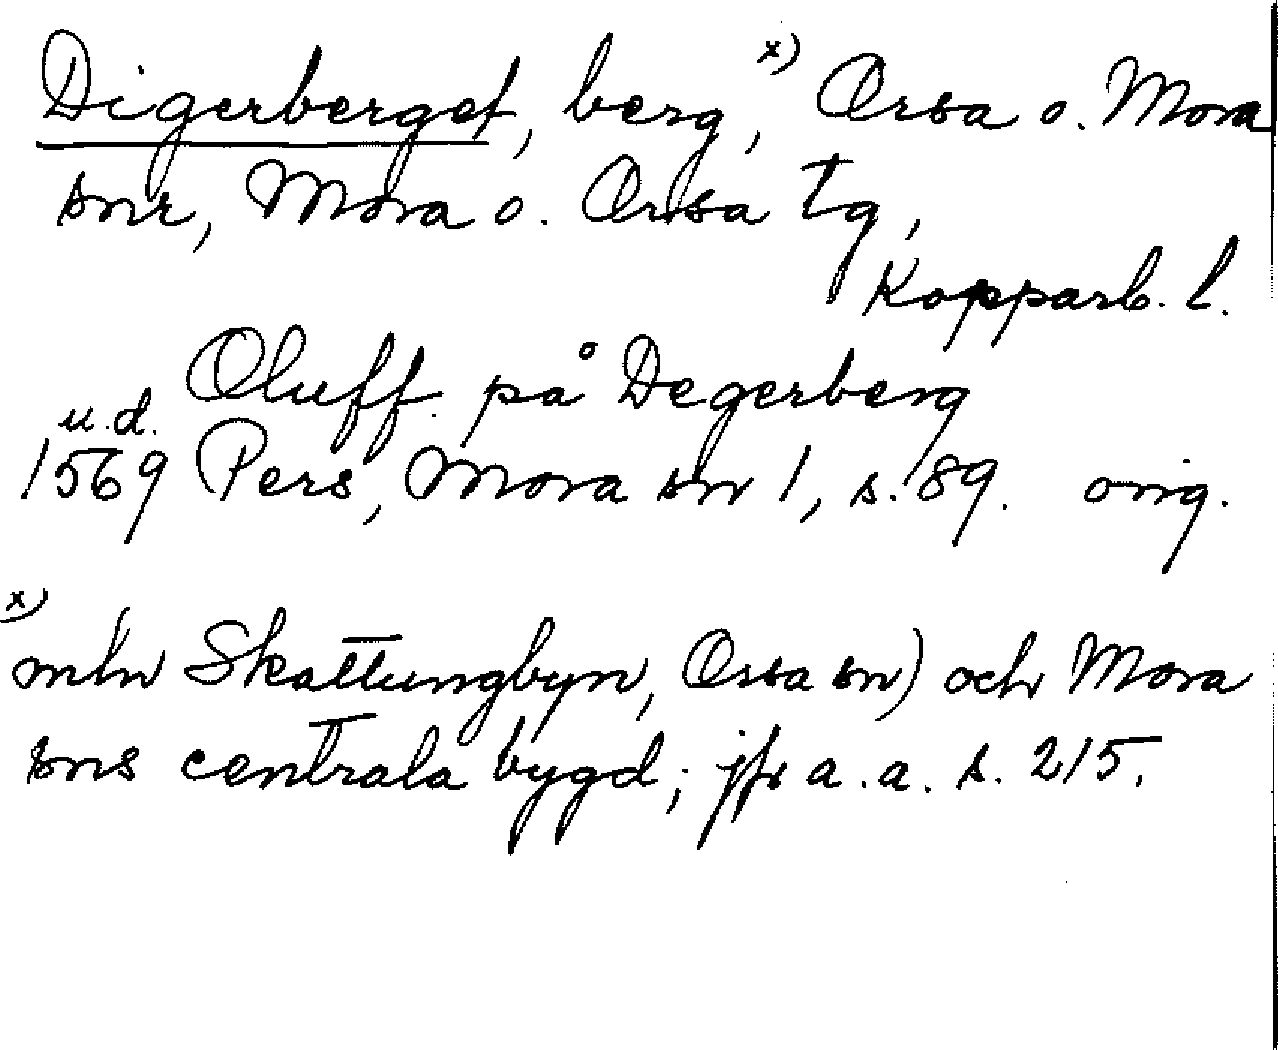 Digerberget, berg,x) Orsa o. Mora
snr, Mora o. Orsa tg,
Kopparb. l.
Oluff på Degerberg
u.d.
1569 Pers, Mora sn 1, s. 89. orig.
x)
mln Skattungbyn, Orsa sn) och Mora
sns centrala bygd; jfr a.a. s. 215.